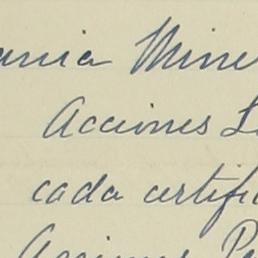 ania Mine
Acciones L
cada certifi
Acciones Pe